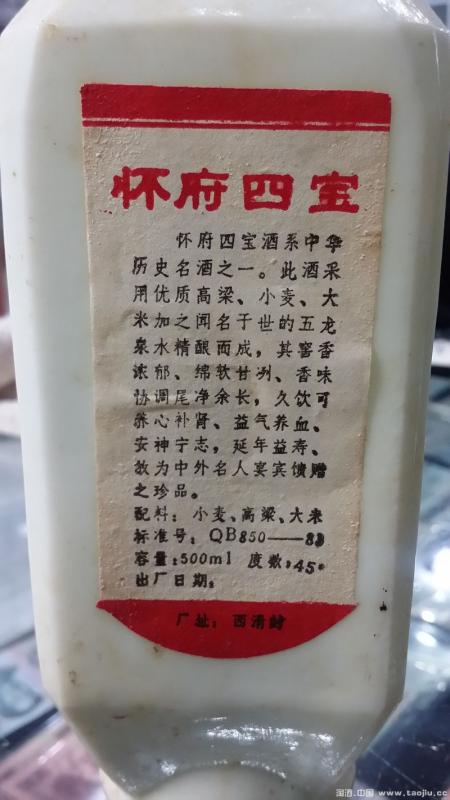 怀府四宝
怀府四宝酒系中华
历史名酒之一。此酒采
用优质高梁、小麦、大
米加之闻名于世的五龙
泉水精酿而成，其窖香
浓郁、绵软甘洌、香味
协调尾净余长，久饮可
养心补肾、益气养血、
安神宁志，延年益寿、
故为中外名人宴宾馈赠
之珍品。
配料：小麦、高梁、大米
标准号：QB850——83
容量：500ml 度数：45°
出厂日期：
厂址：西清封
淘酒.中国 www.taojiu.cc